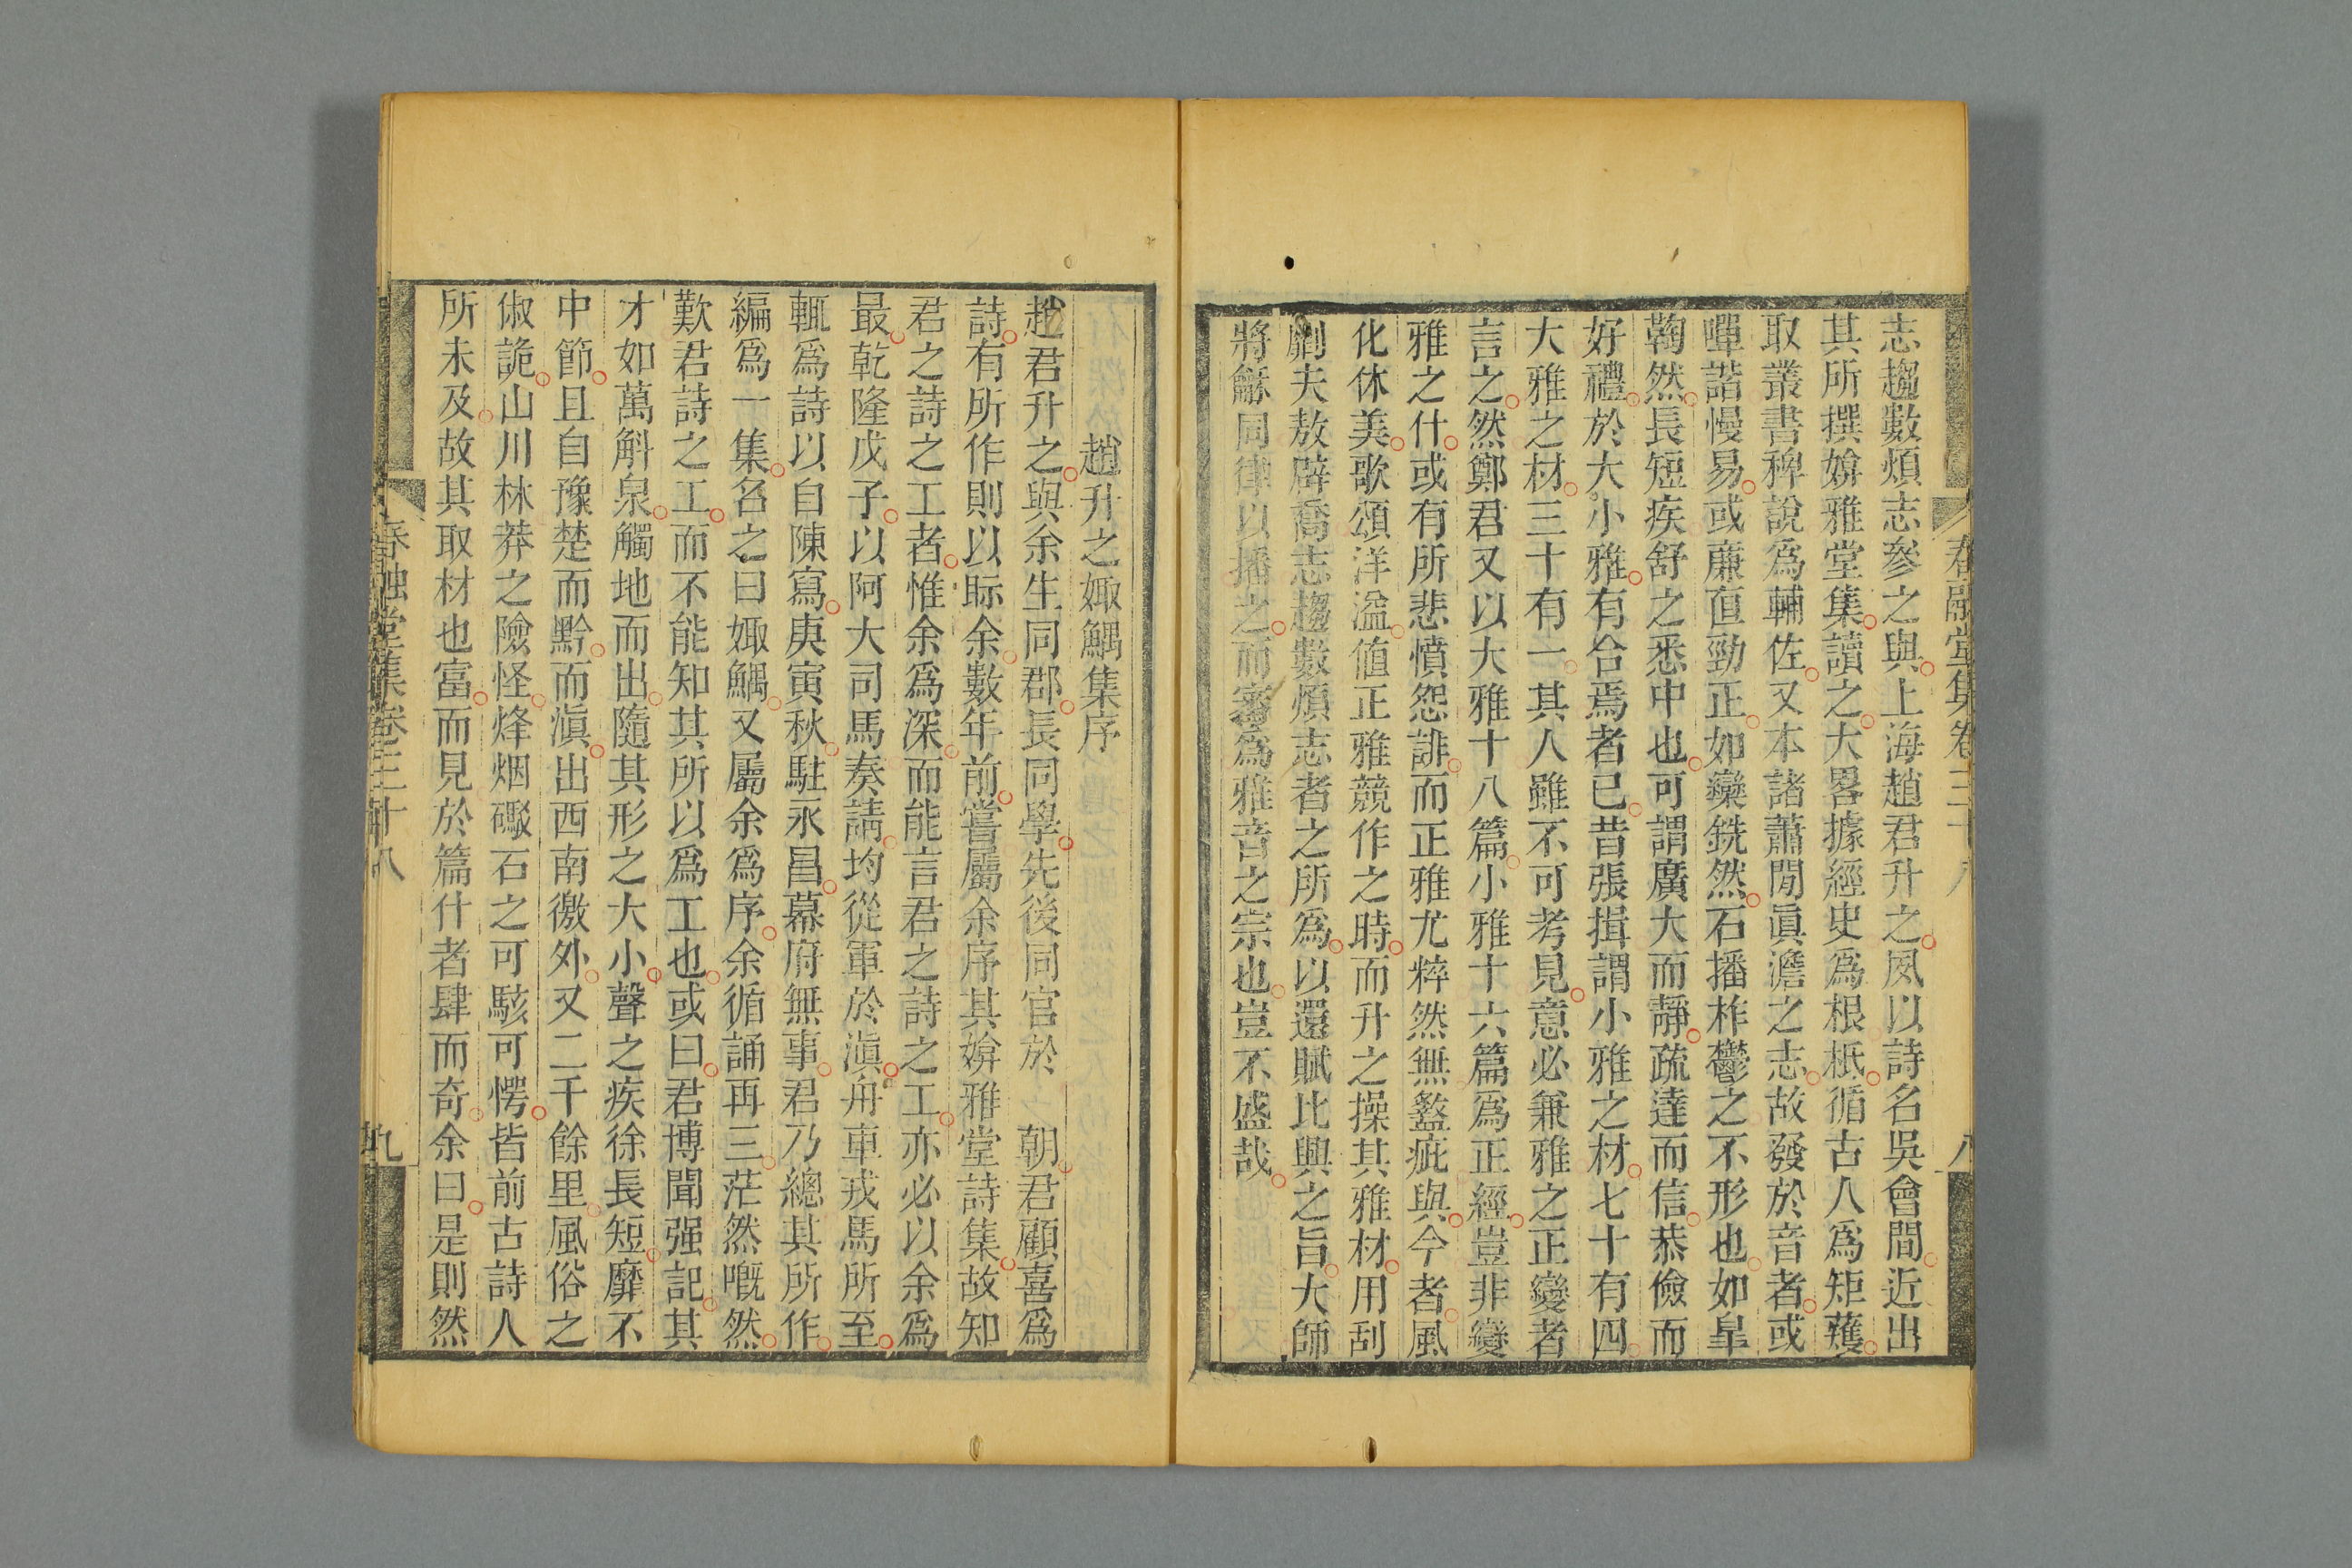 春融堂集卷三十八
八
志趨數煩志參之與上海趙君升之夙以詩名吳會間近出
其所撰媕雅堂集讀之大畧據經史爲根柢循古人爲矩蒦
取叢書稗說爲輔佐又本諸蕭閒眞澹之志故發於音者或
嘽諧慢易或廉直勁正如欒銑然石播柞鬱之不形也如皐
鞠然長短疾舒之悉中也可謂廣大而靜疏達而信恭儉而
好禮於大小雅有合焉者已昔張揖謂小雅之材七十有四
大雅之材三十有一其人雖不可考見意必兼雅之正變者
言之然鄭君又以大雅十八篇小雅十六篇爲正經豈非變
雅之什或有所悲憤怨誹而正雅尤粹然無盭疵與今者風
化休美歌頌洋溢値正雅競作之時而升之操其雅材用刮
劘夫敖辟喬志趨數煩志者之所爲以還賦比興之旨大師
將龢同律以播之而審爲雅音之宗也豈不盛哉
趙升之娵鰅集序
趙君升之與余生同郡長同學先後同官於　朝君顧喜爲
詩有所作則以眎余數年前嘗屬余序其媕雅堂詩集故知
君之詩之工者惟余爲深而能言君之詩之工亦必以余爲
最乾隆戊子以阿大司馬奏請均從軍於滇舟車戎馬所至
輒爲詩以自陳寫庚寅秋駐永昌幕府無事君乃總其所作
編爲一集名之曰娵鰅又屬余爲序余循誦再三茫然嘅然
歎君詩之工而不能知其所以爲工也或曰君博聞强記其
才如萬斛泉觸地而出隨其形之大小聲之疾徐長短靡不
中節且自豫楚而黔而滇出西南徼外又二千餘里風俗之
俶詭山川林莽之險怪烽烟礮石之可駭可愕皆前古詩人
所未及故其取材也富而見於篇什者肆而奇余曰是則然
春融堂集卷三十八
九